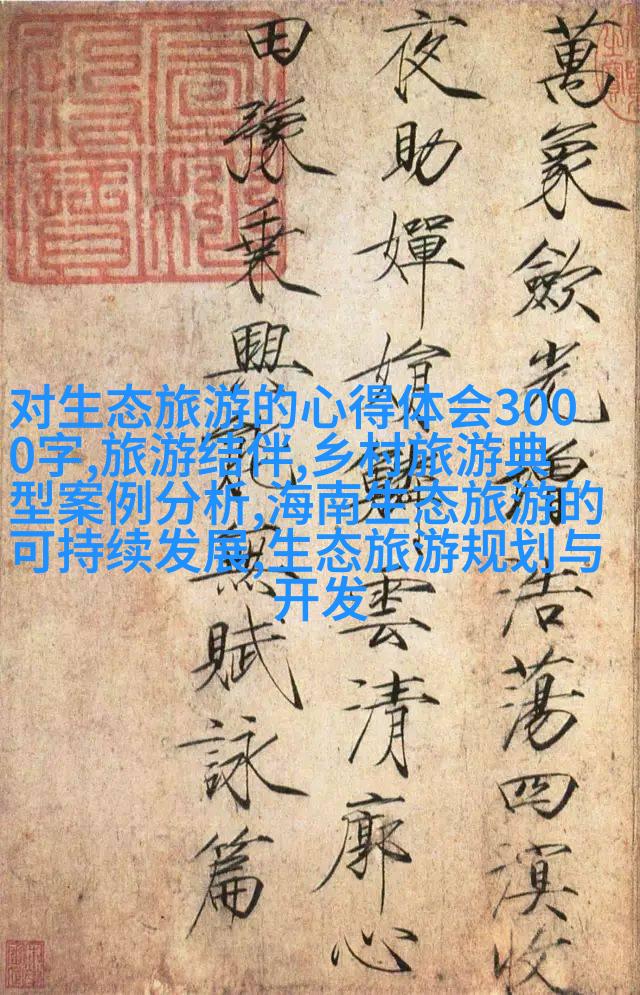 萬象歛光增浩蕩四溟收
夜助嬋娟鱗雲清廓心
田豫乘興能無賦詠篇
对生态旅游的心得体会300
0字,旅游结伴,乡村旅游典
型案例分析,海南生态旅游的
可持续发展,生态旅游规划与
开发